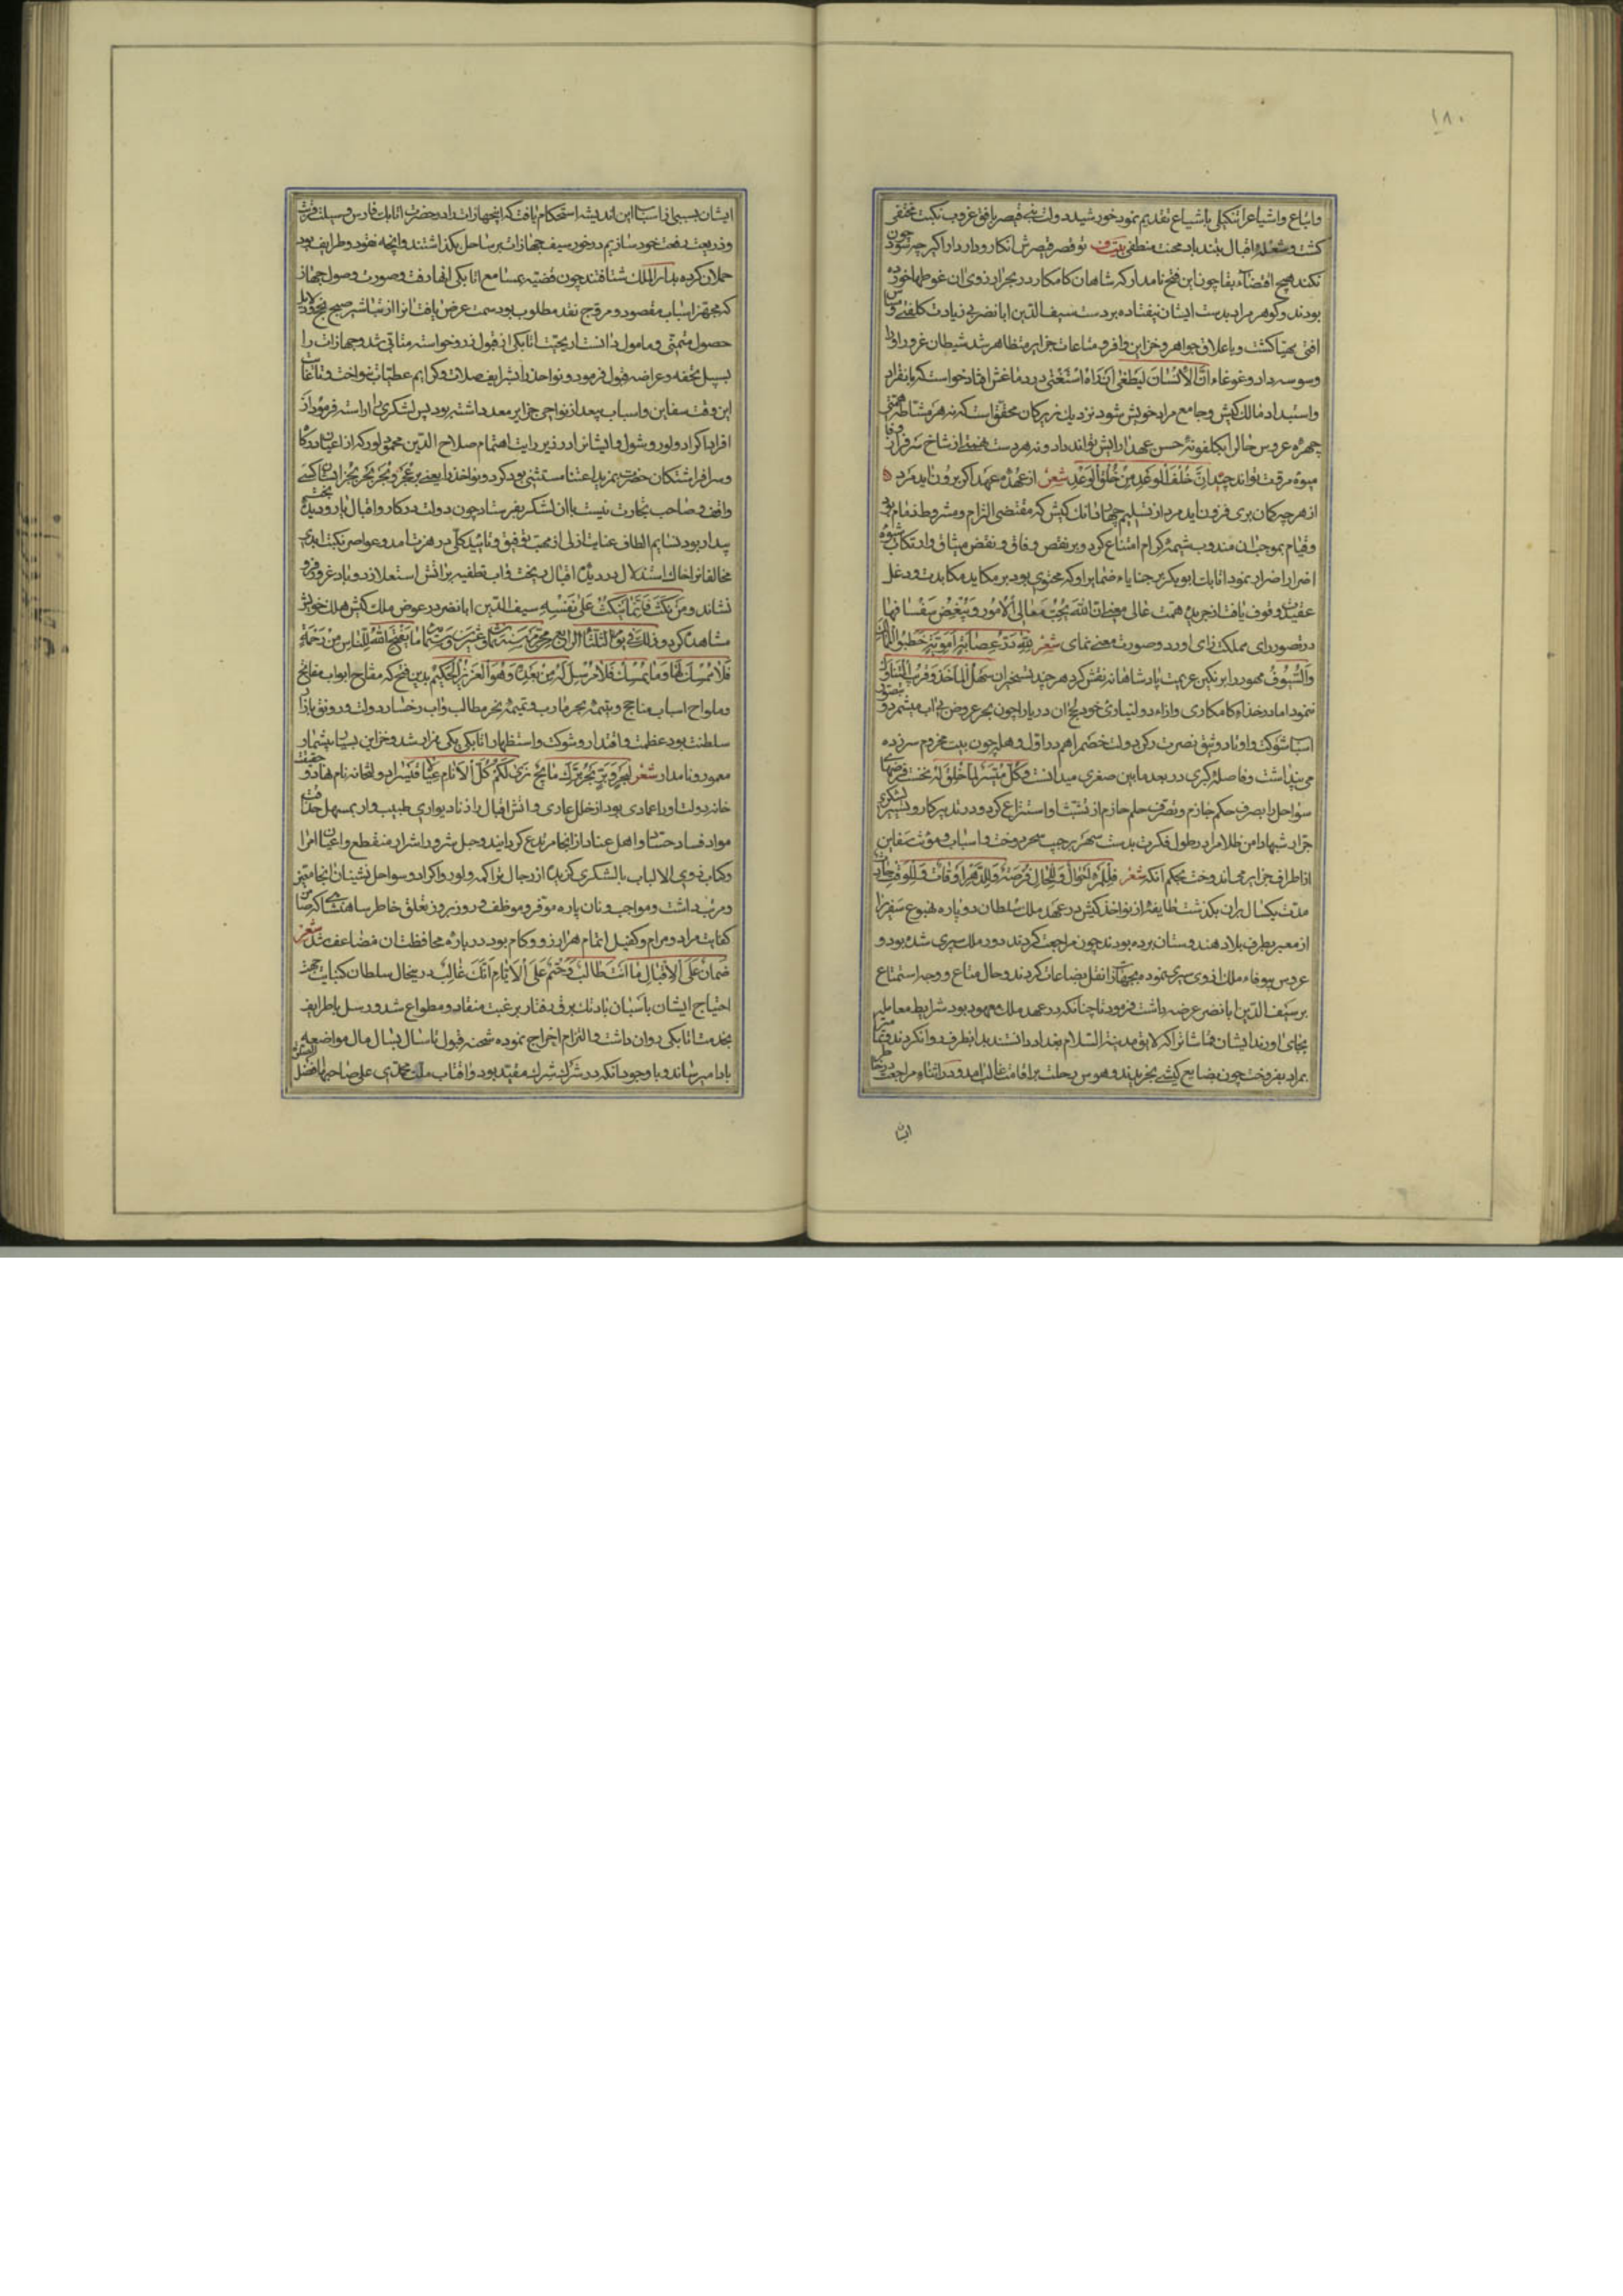 ۱۸۰
واتباع واشیاع را تنکیلی باشباع تقدیم نمود خورشید دولت بنی قیصر بافق غروب نکبت مختفی
کشت و شعله اقبال بتند باد محنت منطفی بیت ف تو قصر قیصرش انکار و دار دارا کیر چه سود چون
نکند هیچ اقتضاء بقا چون این فتح نامدار که شاهان کامکار در بحر ارزوی ان غوطها خورده
بودند و کوهر مراد بدست ایشان نیفتاده بر دست سیف الدین ابا نضر بی زیادت تکلفی و
افتی مهیا کشت و باعلاق جواهر و خزاین وافر و متاعات جزایر متظاهر شد شیطان غرور او را
وسوسه داد و غوغاء ان الانسان لیطغی ان راه استغنی در دماغش افتاد خواست که بانفراد
واستبداد مالک کیش و جامع مراد خویش شود نزدیک زیرکان محقق است که نه هر مشاطه همتی
چهره عروس حال را بکلغونه حسن عهد ارایش تواند داد و نه هر دست از شاخ سرفراز وفا
میوه مروت تواند چید ان خلف الوعد من خلق الوغد شعر از عهده عهد اکر برون اید مرد
از هر چه کمان بری فزون اید مرد از تسلیم جهازات کیش که مقتضی التزام و مشروط
وقیام بموجب ان مندوب شیمه کرام امتناع کرد و بر نقص وفاق و نقض میثاق وارتکاب
اضرار اضرار نمود اتابک ابو بکر بر خبایاء ضمایر او که محتوی بود بر مکاید مکابدت و دغل
عقیدت وقوف یافت از جریده همت عالی ان الله یحب معالی الامور و یبغض سفسافها
در تصور رای مملکت زای اورد و صورت معنی نمای شعر لله در عصابة امویة خطبوا
والسیوف مهور را بر نکین عزیمت پادشاهانه نقش کرد هر چند تسخیر ان سهل الماخذ و قرب التناول
نمود اما در خذاء کامکاری وازاء دولتیاری خود یخ ان دریا را چون بحر عروض بی اب میشمرد
اسباب شوکت و اوتاد وثیق نصرت رکن دولت خصم را هم در اول وهله چون بیت مخروم سر زده
می پنداشت و فاصله کبری در بعد ما بین صغری میدانست و کل میسر لما خلق له نخست فرضهای
سواحل را بصرف حکم جازم و تصرف حلم حازم از تشبث او استنزاع کرد و در تدبیر کار و تسییر لشکری
جرار شبها دامن ظلام را در طول فکرت بدست سهر بر جیب سحر دوخت و اسباب و مؤنت سفاین
از اطراف جزایر می اندوخت بحکم انکه شعر فللمرء احوال و للحال فرصة وللدهر اوقات و للوقت
مدت یکسال بران بکذشت طایفه از نواخذ کیش در عهد ملک سلطان دو پاره نهبوع سفر را
از معبر بطرف بلاد هندوستان برده بودند چون مراجعت کردند دور ملک سپری شده بود و
عروس بیوفاء ملک از وی سیری نموده نقل بضاعات کردند و حال متاع و وجه استمتاع
بر سیف الدین ابا نضر عرضه داشت فرمود تا چنانکه در عهد ملک معهود بود شرایط معامله
بجای اورند ایشان قماشاتی را که لایق مدینة السلام بغداد دانستند بدانطرف روانه کردند
بمراد بفروخت چون بضایع کیشی بخریدند و هوس رحلت بر اقامت غالب امد و در اثناء مراجعت
ایشا
ایشان بسببی از اسباب این اندیشه استحکام یافت که این جهازات را در حضرت اتابک فارس وسیلت قربت
و ذریعت رفعت خود سازیم در خور سیف جهازات بر ساحل بکذاشتند وانچه نقود و طرایف بود
حملان کرده بدار الملک شتافتند چون قضیه بمسامع اتابکی انهاد رفت و صورت وصول جهاز
که مجهز اسباب مقصود و مروج نقد مطلوب بود سمت عرض یافت انرا از تباشیر صبح نجح و دلایل
حصول متمنی و مامول دانست اریحیت اتابکی از قبول زر و خواسته متابی شد و جهازات را
بسبیل تحفه و عراضه قبول فرمود و نواخذ را بشرایف صلات و کرایم عطیات نواخت و
این وقت سفاین و اسباب بیعد از نواحی جزایر معد داشته بود پس لشکری را اراسته فرمود از
افراد اکراد و لور و شول و ایشانرا در زیر رایت اهتمام صلاح الدین محمود لور که از اعیان درکاه
و سرافراشتکان حضرت بمزید اعتنا مستثنی بود کرد و نواخذ را یعنی بر عجر و بجر بحر بحر ایشان کسی
واقف و صاحب تجارت نیست با ان لشکر بفرستاد چون دولت در کار و اقبال یار و دیده بخت
بیدار بود نسایم الطاف عنایت ازلی از مهب توفیق و تایید کلی در هزت امد و عواصر نکبت ابدی
مخالفانرا خاک استذلال در دیده اقبال ریخت و اب تطفیه بر اتش استعلا زد و باد غرور فرو
نشاند و من نکث فانما ینکث علی نفسه سیف الدین ابا نضر در عوض ملک کیش هلک خویش
مشاهده کرد و ذلک فی یوم الثلثا الرابع محرم سنة ثمان و عشرین و ستمائه ما یفتح الله للناس من رحمة
فلا ممسک لها و ما یمسک فلا مرسل له من بعده و هو العزیز الحکیم بدین فتح که مفتاح ابواب مفاتح
و ملواح اسباب مناجح و یتیمه بحر مارب و تمیمه نحر مطالب و اب رخسار دولت و رونق بازار
سلطنت بود عظمت و اقتدار و شوکت و استظهار اتابکی یکی هزار شد و خزاین بسیار بیشمار
معمور و نامدار شعر لبحر و بین بحر نزل کل الانام عیال فلیسر او دولتخانه نام نهاد و حقیقت
خانه دولت او را عمادی بود از خلل عادی و اتش اقبال را زناد یواری طبیب وار بمسهل حذاقت
مواد فساد حساد و اهل عناد از انجا مرتدع کردانید و حبل شرور اشرار منقطع و اعیان امرا
و کتاب ذوی الالباب با لشکری کزیده از رجال تراکمه و لور و اکراد و سواحل نشینان انجا متمیز
و مرتب داشت و مواجب و نان پاره موقر و موظف و روز بروز تعلق خاطر شاهنشاهی که ضمان
کفایت مراد و مرام و کفیل اتمام هزار ارزو و کام بود در باره محافظت ان مضاعف شد شعر
ضمان علی الاقبال ما انت طالب و حتم علی الایام انک غالب در یخال سلطان کنبایت جهت
احتیاج ایشان باسبان بادتک برق رفتار برغبت منقاد و مطواع شد و رسل با طرایف
بخدمت اتابکی روان داشت و التزام اخراج نموده شحنه قبول تا سال بسال مال مواضعه
بادا میرساند و با وجود انکه در شرک شرک مقید بود و افتاب ملت محمدی علی صاحبها افضل